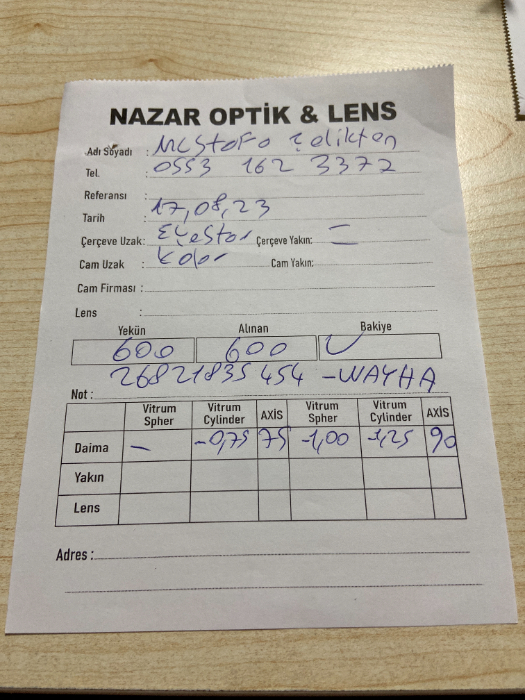 NAZAR OPTİK & LENS
Adı Soyadı : Mustafa Çelikten
Tel. : 0553 162 3372
Referansı :
Tarih : 17,08,23
Çerçeve Uzak: Çerçeve Yakın: =
Cam Uzak : Kolor Cam Yakın:
Cam Firması :
Lens :
Yekün Alınan Bakiye
600 600
26821835454 -WAYHA
Not :
Vitrum Spher Vitrum Cylinder AXİS Vitrum Spher Vitrum Cylinder AXİS
Daima — -0,75 75 -1,00 -1,25 90
Yakın
Lens
Adres :